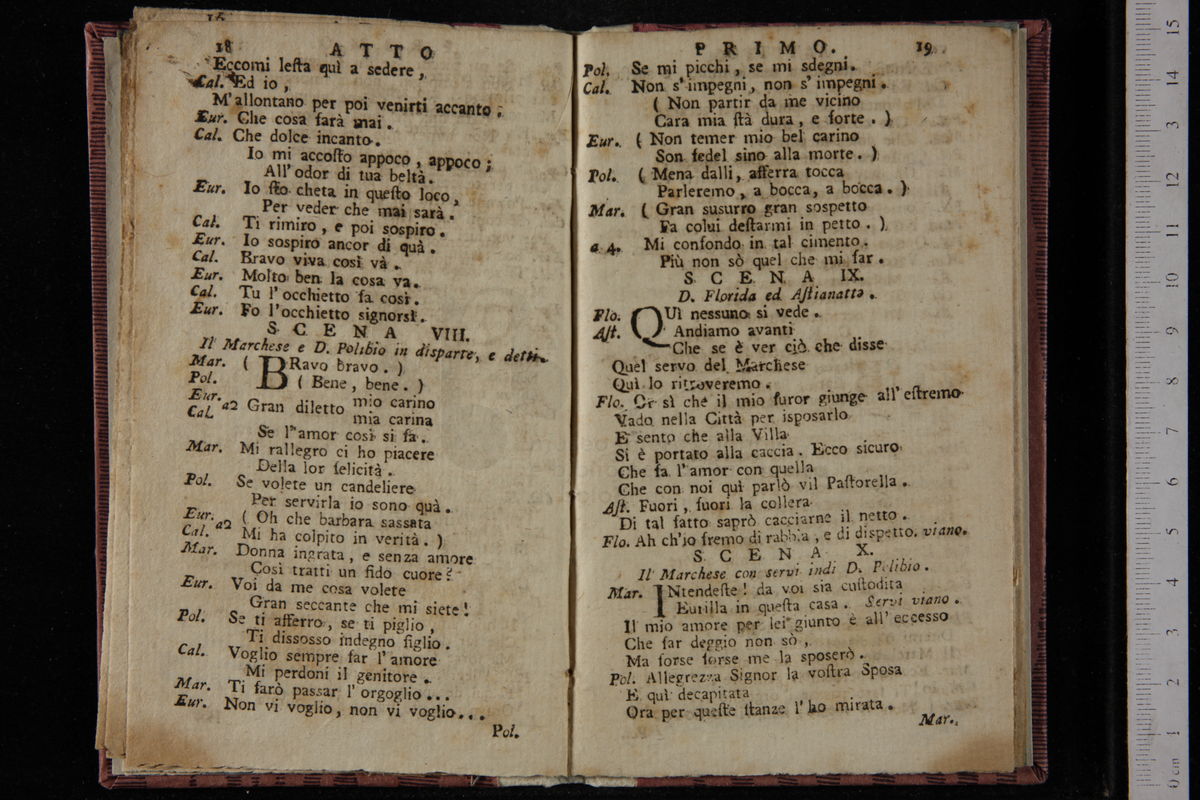 18 ATTO
Eccomi lesta quì a sedere,
Cal. Ed io,
M'allontano per poi venirti accanto;
Eur. Che cosa sarà mai.
Cal. Che dolce incanto.
Io mi accosto appoco, appoco;
All'odor di tua beltà.
Eur. Io sto cheta in questo loco,
Per veder che mai sarà.
Cal. Ti rimiro, e poi sospiro.
Eur. Io sospiro ancor di quà.
Cal. Bravo viva così và.
Eur. Molto ben la cosa va.
Cal. Tu l'occhietto fa così.
Eur. Fo l'occhietto signorsì.
SCENA VIII.
Il Marchese e D. Polibio in disparte, e detti.
Mar. ( BRavo bravo. )
Pol. ( Bene, bene. )
Eur. Cal. a2 Gran diletto mio carino
mia carina
Se l'amor così si fa.
Mar. Mi rallegro ci ho piacere
Della lor felicità.
Pol. Se volete un candeliere
Per servirla io sono quà.
Eur. Cal. a2 ( Oh che barbara sassata
Mi ha colpito in verità. )
Mar. Donna ingrata, e senza amore
Così tratti un fido cuore?
Eur. Voi da me cosa volete
Gran seccante che mi siete!
Pol. Se ti afferro, se ti piglio,
Ti dissosso indegno figlio.
Cal. Voglio sempre far l'amore
Mi perdoni il genitore.
Mar. Ti farò passar l'orgoglio...
Eur. Non vi voglio, non vi voglio...
Pol.
PRIMO. 19
Pol. Se mi picchi, se mi sdegni.
Cal. Non s'impegni, non s'impegni.
( Non partir da me vicino
Cara mia stà dura, e forte. )
Eur. ( Non temer mio bel carino
Son fedel sino alla morte. )
Pol. ( Mena dalli, afferra tocca
Parleremo, a bocca, a bocca. )
Mar. ( Gran susurro gran sospetto
Fa colui destarmi in petto. )
a 4. Mi confondo in tal cimento.
Più non sò quel che mi far.
SCENA IX.
D. Florida ed Astianatto.
Flo. QUì nessuno si vede.
Ast. Andiamo avanti
Che se è ver ciò che disse
Quel servo del Marchese
Quì lo ritroveremo.
Flo. Or sì che il mio furor giunge all'estremo
Vado nella Città per isposarlo
E sento che alla Villa
Si è portato alla caccia. Ecco sicuro
Che fa l'amor con quella
Che con noi quì parlò vil Pastorella.
Ast. Fuori, fuori la collera
Di tal fatto saprò cacciarne il netto.
Flo. Ah ch'io fremo di rabbia, e di dispetto. viano.
SCENA X.
Il Marchese con servi indi D. Polibio.
Mar. INtendeste! da voi sia custodita
Eurilla in questa casa. Servi viano.
Il mio amore per lei giunto è all'eccesso
Che far deggio non sò,
Ma forse forse me la sposerò.
Pol. Allegrezza Signor la vostra Sposa
E quì decapitata
Ora per queste stanze l'ho mirata.
Mar.